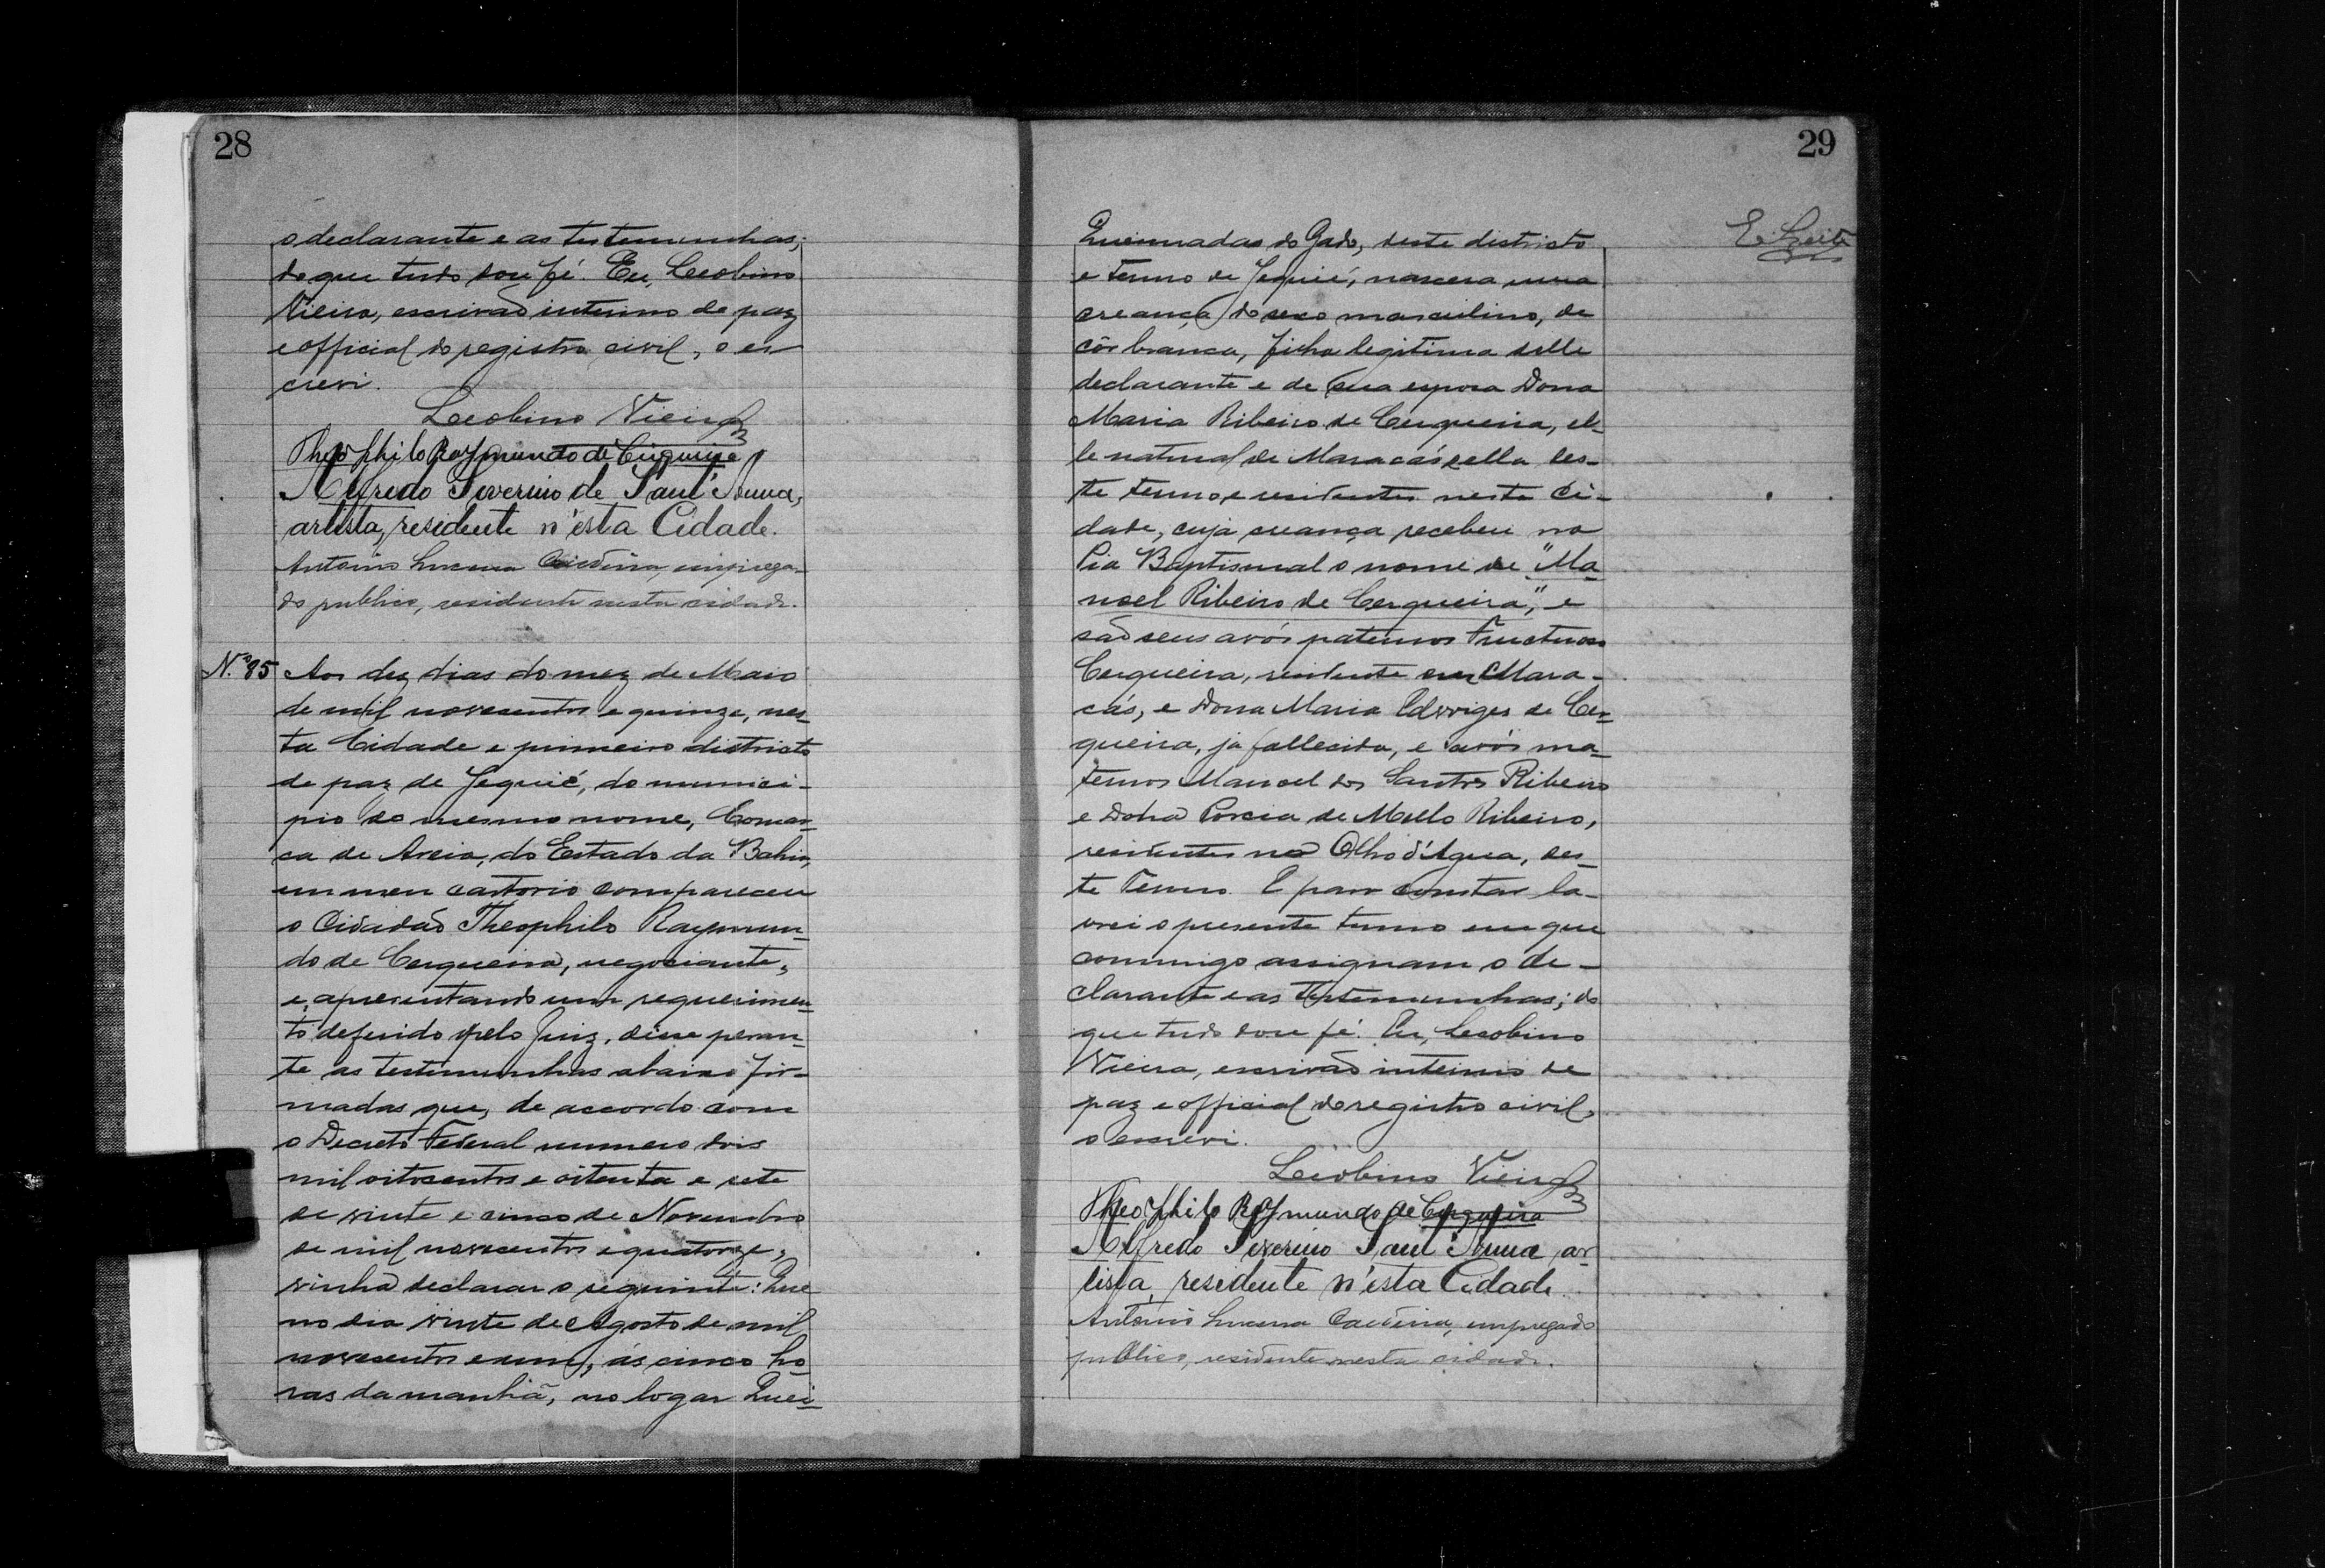 28
o declarante e as testemunhas;
do que tudo dou fé. Eu, Leobino
Vieira, escrivaõ interino de paz
e official do registro civil, o es-
crevi.
Leobino Vieira
Theophilo Raymundo de Cerqueira
Alfredo Severino de Sant'Anna,
artista, residente n'esta Cidade.
Antonio Lucena emprega-
do publico, residente nesta cidade.
N.º 85 Aos dez dias do mez de Maio
de mil novecentos e quinze, nes-
ta Cidade e primeiro districto
de paz de Jequié, do munici-
pio do mesmo nome, Comar-
ca de Areia, do Estado da Bahia,
em meu cartorio compareceu
o Cidadaõ Theophilo Raymun-
do de Cerqueira, negociante,
e apresentando um requerimen-
to deferido pelo Juiz, disse peran-
te as testemunhas abaixo fir-
madas que, de accordo com
o Decreto Federal numero dois
mil oitocentos e oitenta e sete
de vinte e cinco de Novembro
de mil novecentos e quatorze,
vinha declarar o seguinte: Que
no dia vinte de Agosto de mil
novecentos e um, ás cinco ho-
ras da manhã, no logar Quei-
29
Queimadas do Gado, deste districto
e termo de Jequié, nascera uma
creança do sexo masculino, de
côr branca, filha legitima delle
declarante e de sua esposa Dona
Maria Ribeiro de Cerqueira, el-
le natural de Maracás, ella des-
te termo, e residentes nesta Ci-
dade, cuja creança recebeu na
Pia Baptismal o nome de "Ma-
noel Ribeiro de Cerqueira", e
saõ seus avós paternos Fructuoso
Cerqueira, residente em Mara-
cás, e Dona Maria Edwviges de Cer-
queira, já fallecida, e avós ma-
ternos Manoel dos Santos Ribeiro
e Dona Porcia de Mello Ribeiro,
residentes no Olho d'Agua, des-
te Termo. E para constar la-
vrei o presente termo em que
commigo assignam o de-
clarante e as testemunhas; do
que tudo dou fé. Eu, Leobino
Vieira, escrivaõ interino de
paz e official do registro civil,
o escrevi.
Leobino Vieira
Theophilo Raymundo de Cerqueira
Alfredo Severino Sant'Anna, ar-
tista, residente n'esta Cidade
Antonio Lucena empregado
publico, residente nesta cidade.